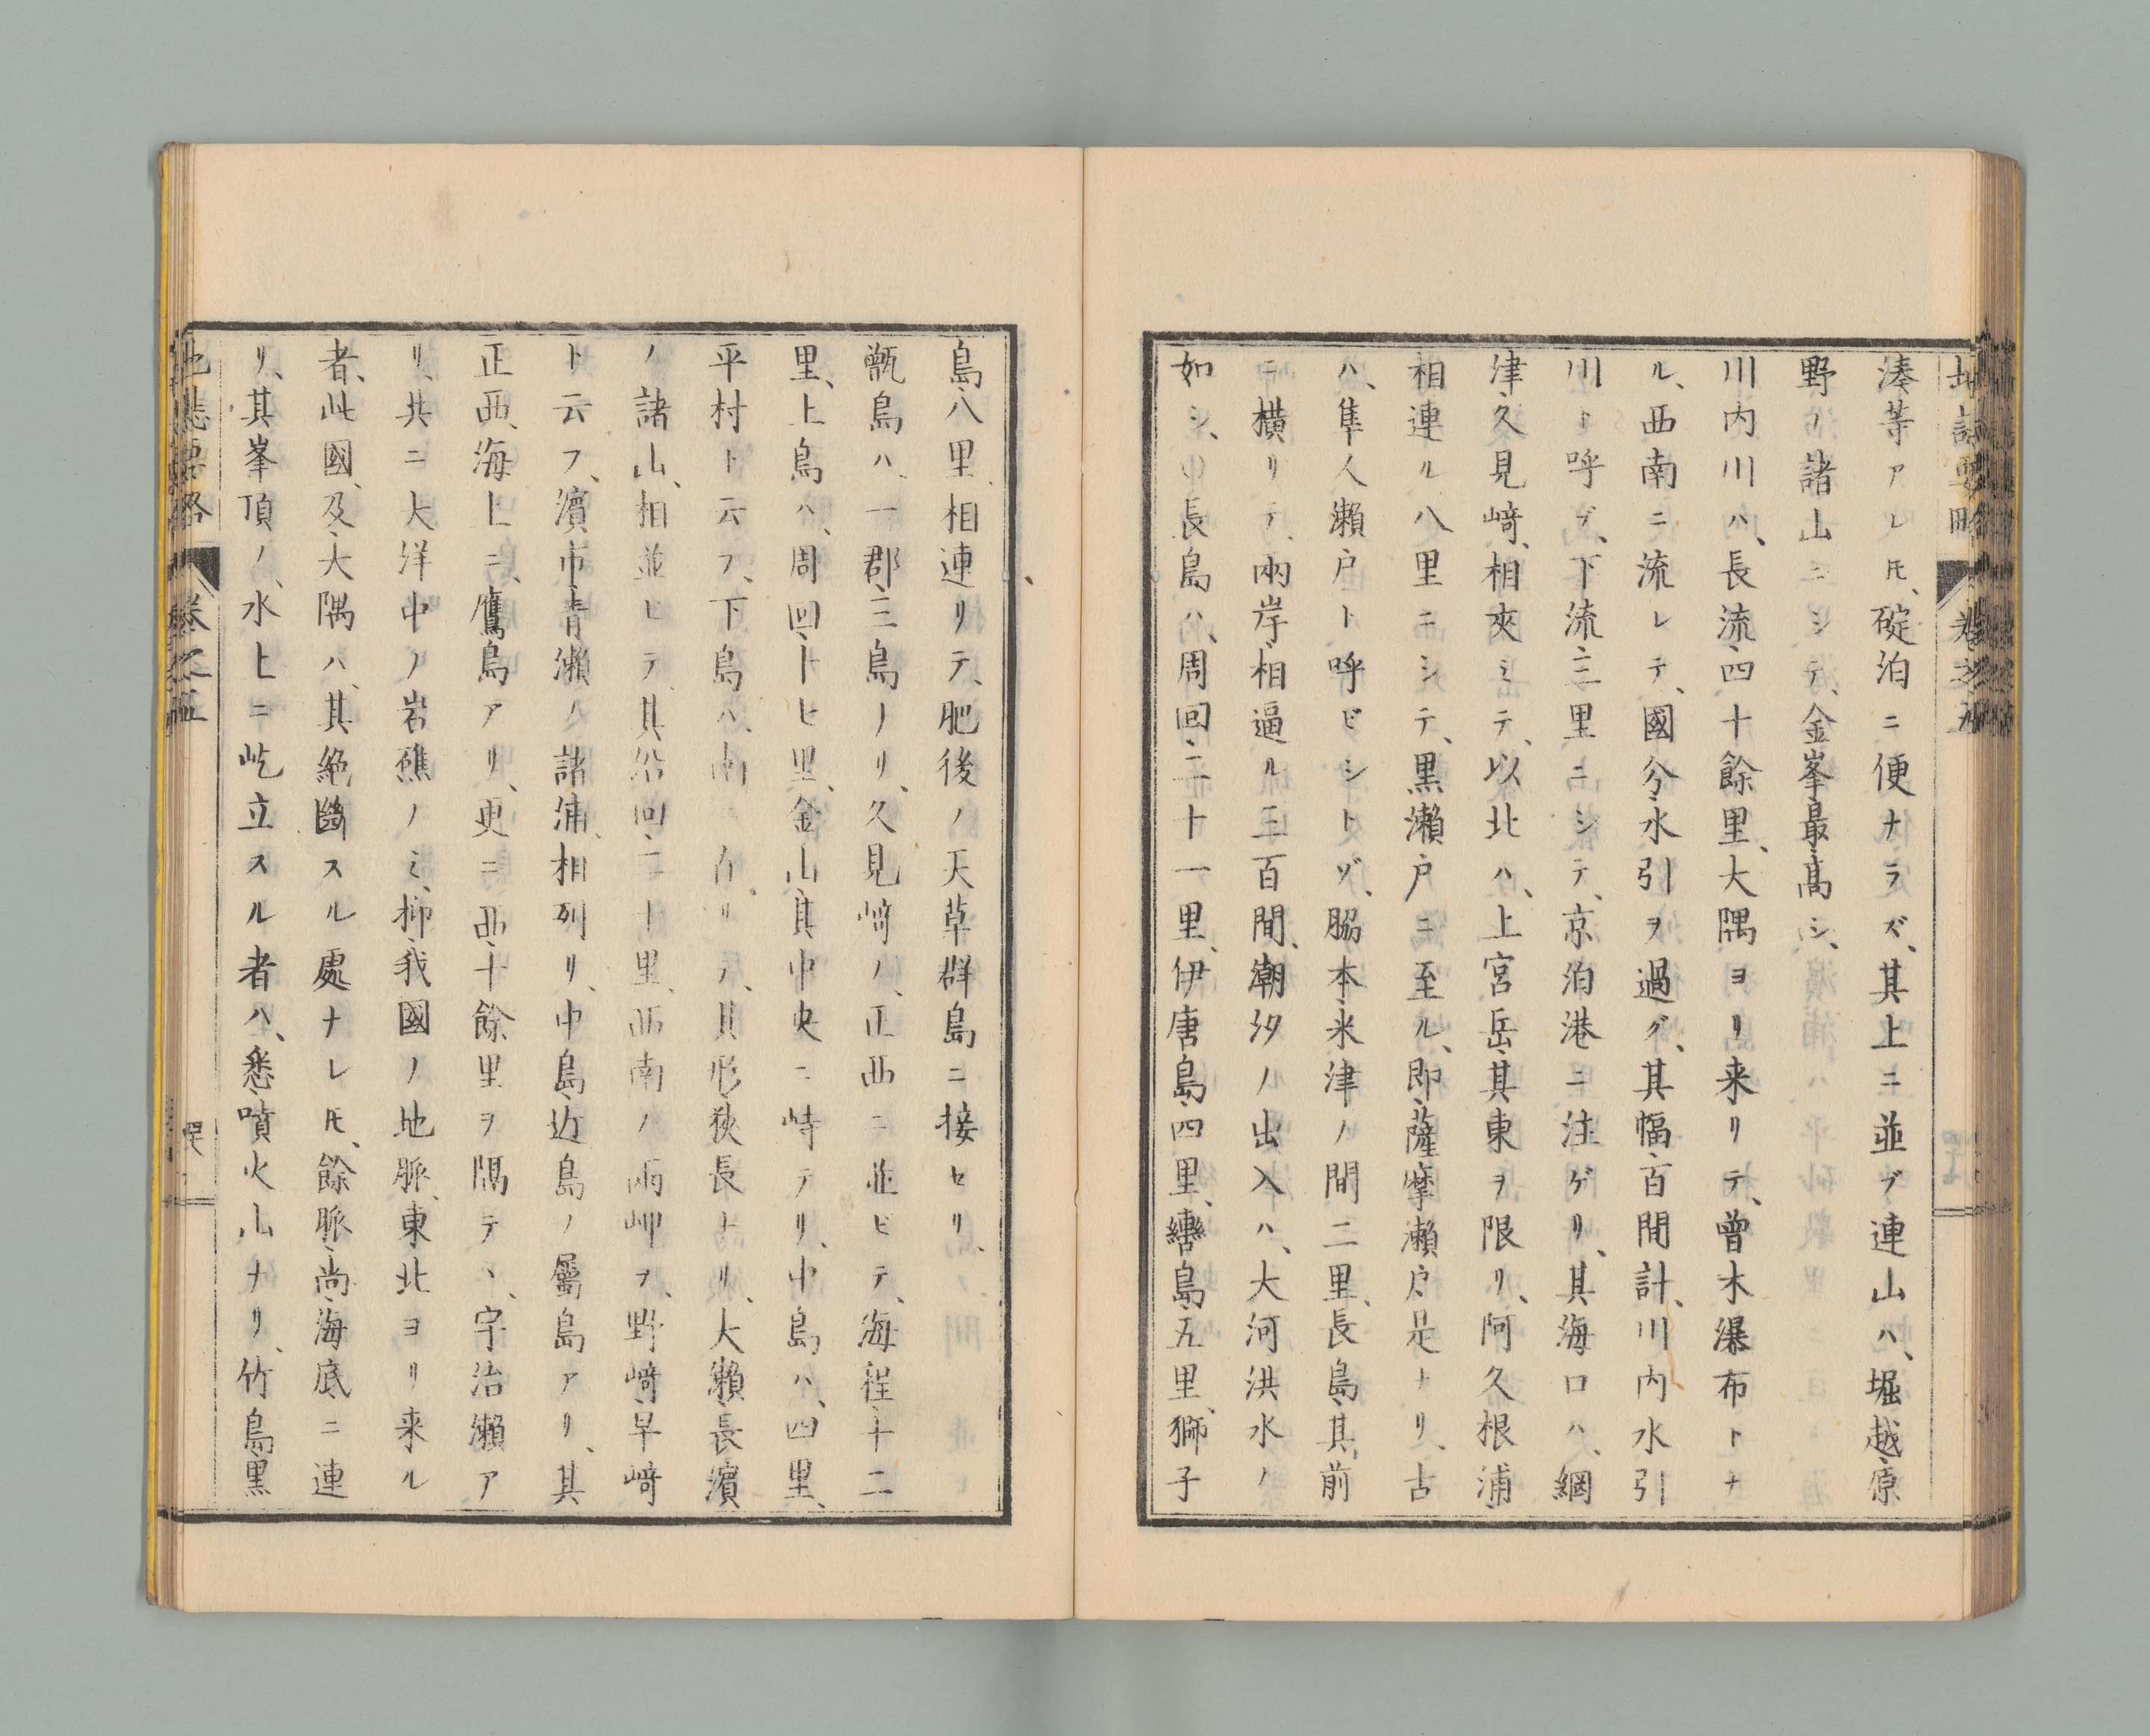 湊等アレ𪜈、碇泊ニ便ナラズ、其上ニ並ブ連山ハ、堀越原
野ノ諸山ニシテ、金峯最高シ、
川内川ハ、長流四十餘里、大隅ヨリ来リテ、曾木瀑布トナ
ル、西南ニ流レテ、國分水引ヲ過グ、其幅百間計、川内水引
川ト呼ブ、下流三里ニシテ、京泊港ニ注ゲリ、其海口ハ、網
津久見﨑、相夾ミテ、以北ハ、上宮岳其東ヲ限リ、阿久根浦
相連ル八里ニシテ、黒瀬戸ニ至ル、即薩摩瀬戸是ナリ、古
ハ、隼人瀬戸ト呼ビシトゾ、脇本米津ノ間二里、長島其前
ニ横リテ、兩岸相逼ル三百間、潮汐ノ出入ハ、大河洪水ノ
如シ、長島ハ、周回二十一里、伊唐島四里、轡島五里、獅子
島八里、相連リテ、肥後ノ天草群島ニ接セリ、
甑島ハ、一郡三島ノリ、久見﨑ノ、正西ニ並ビテ、海程十二
里、上島ハ、周回十七里、金山其中央ニ峙テリ、中島ハ、四里、
平村ト云フ、下島ハ、南ニ在リテ、其形狹長ナリ、大瀬長濱
ノ諸山、相並ビテ、其沿回二十里、西南ノ兩岬ヲ、野﨑早﨑
ト云フ、濱市青瀬ノ諸浦、相列リ、中島近島ノ屬島アリ、其
正西、海上ニ、鷹島アリ、更ニ西十餘里ヲ隔テヽ、宇治瀬ア
リ、共ニ大洋中ノ岩礁ノミ、抑我國ノ地脈、東北ヨリ来ル
者、此國、及大隅ハ、其絶斷スル處ナレ𪜈、餘脈尚海底ニ連
リ、其峯頂ノ、水上ニ屹立スル者ハ、悉噴火山ナリ、竹島黒
地誌要略
卷之五